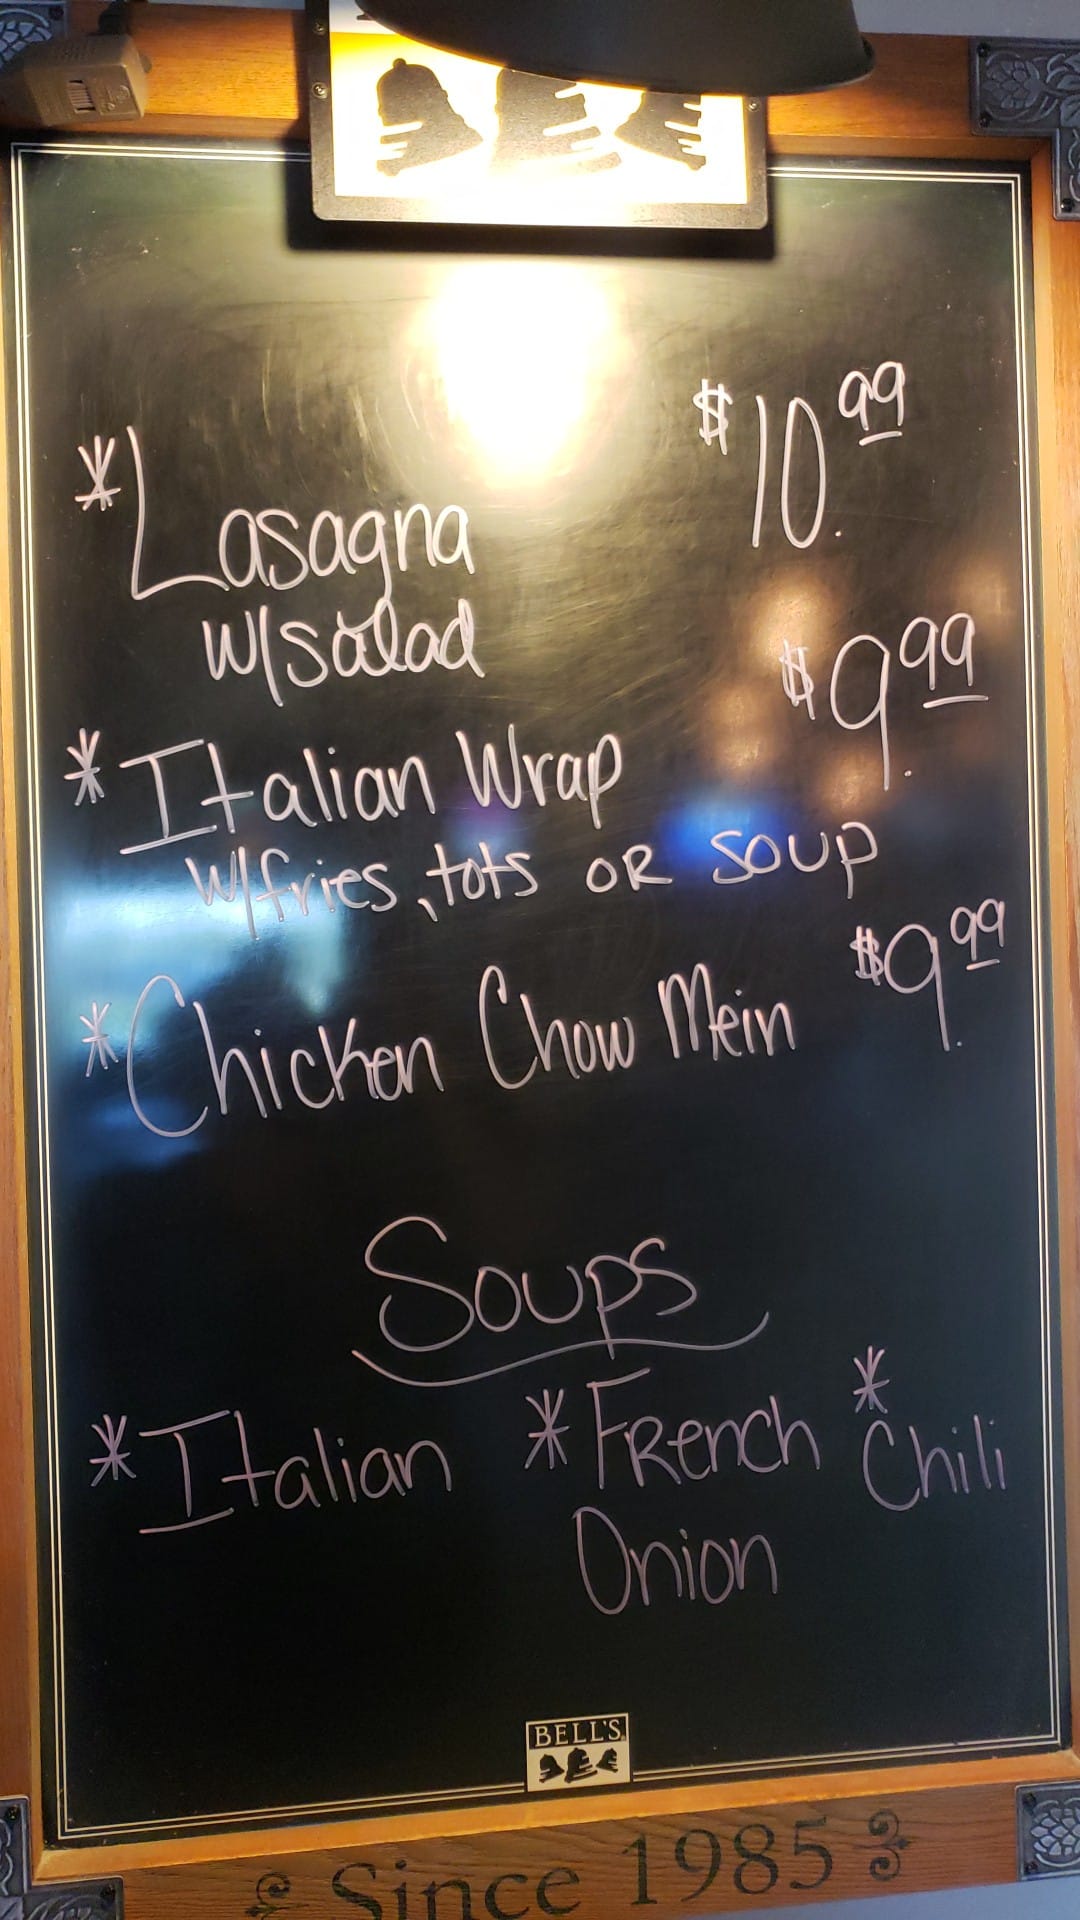 *Lasagna $10.99
w/salad
*Italian Wrap $9.99
w/fries, tots OR soup
*Chicken Chow Mein $9.99
Soups
*Italian *French *Chili
Onion
BELL'S
Since 1985